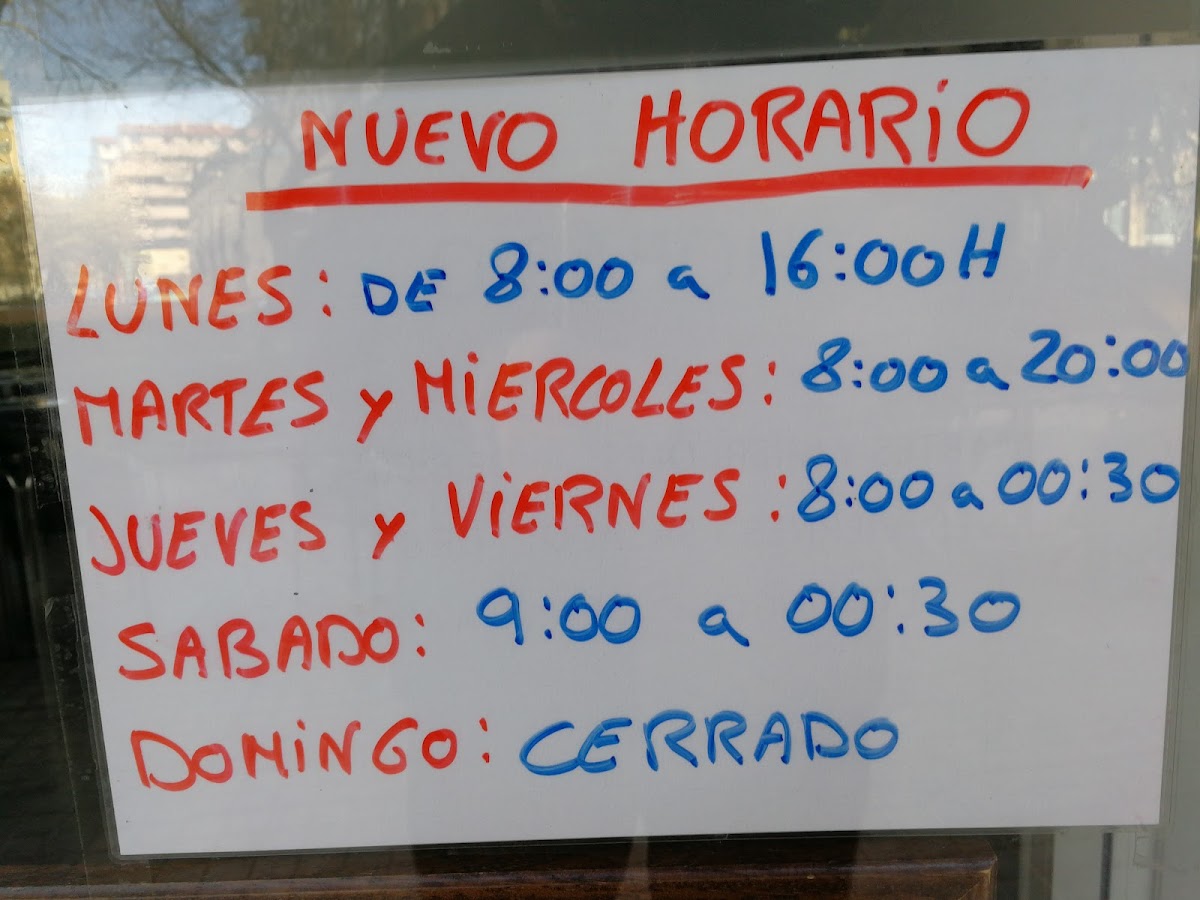 NUEVO HORARiO
LUNES: DE 8:00 a 16:00H
MARTES y MiERCOLES: 8:00 a 20:00
JUEVES y ViERNES: 8:00 a 00:30
SABADO: 9:00 a 00:30
DOMiNGO: CERRADO